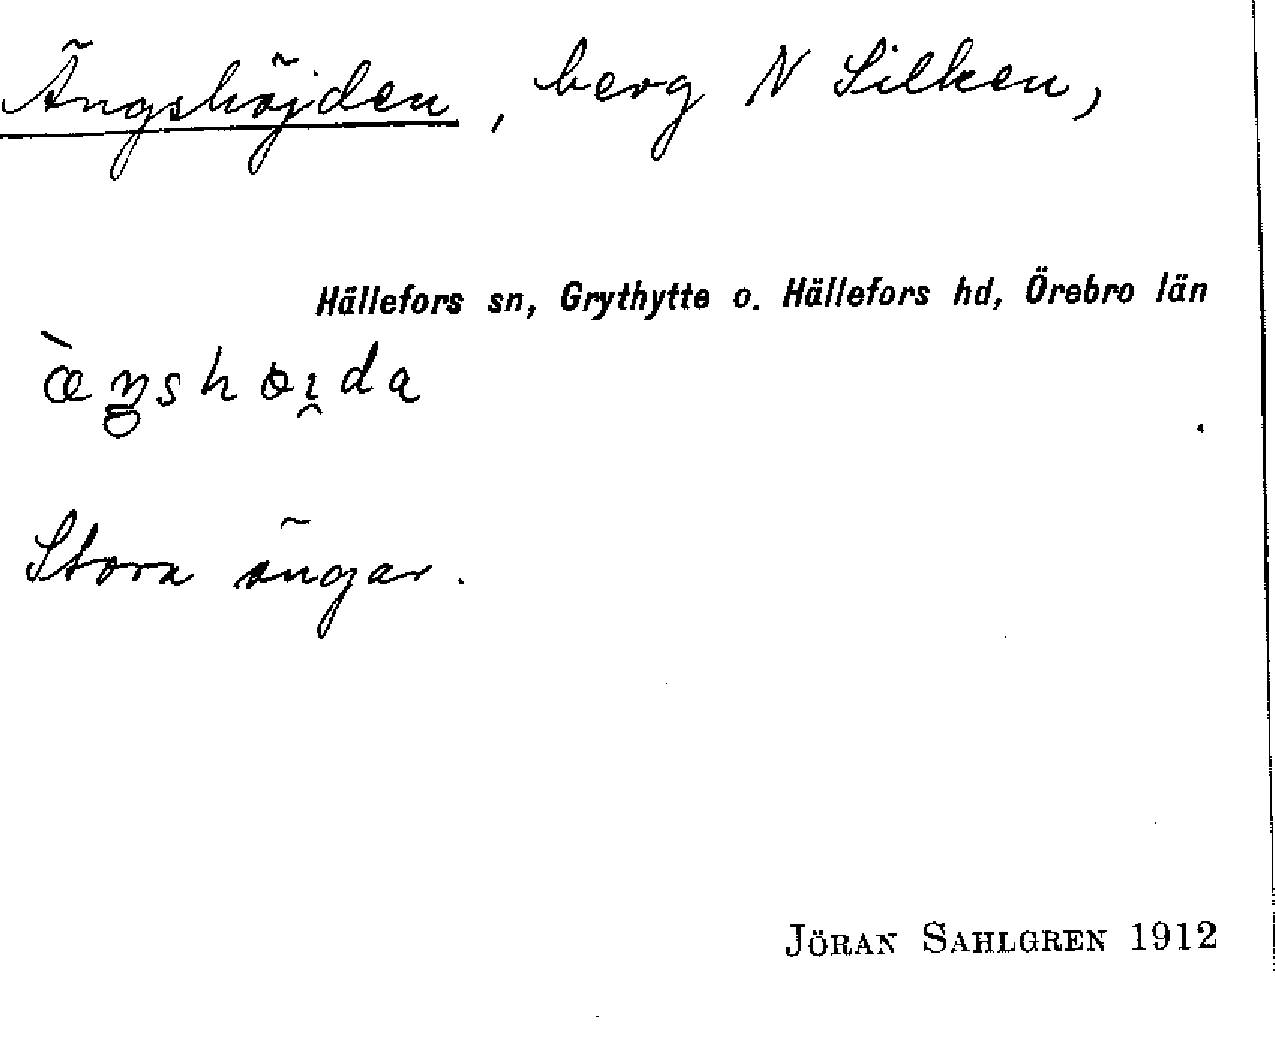 Ängshöjden, berg N Silken,
Hällefors sn, Grythytte o. Hällefors hd, Örebro län
æ̀ŋshɵı̯da
Stora ängar.
JÖRAN SAHLGREN 1912